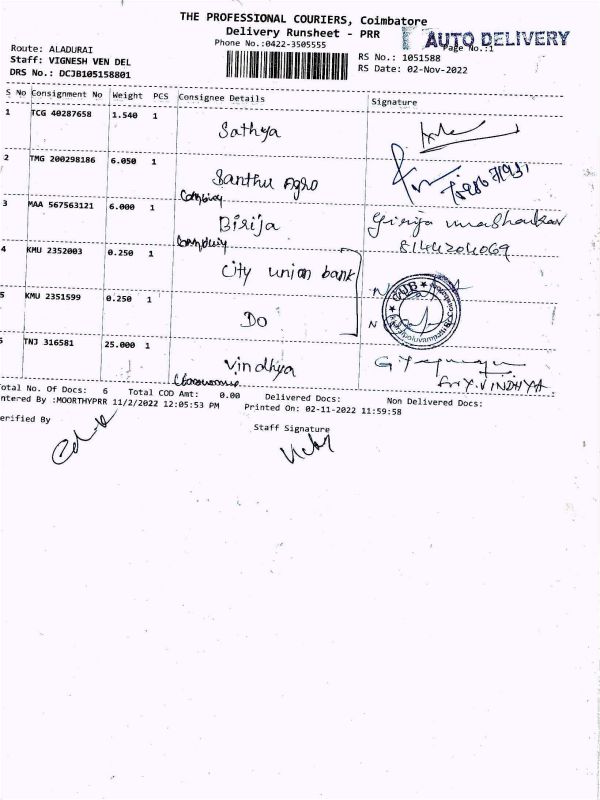 THE PROFESSIONAL COURIERS, Coimbatore
Delivery Runsheet - PRR
AUTO DELIVERY
Phone No.:0422-3505555
Page No.:1
Route: ALADURAI
RS No.: 1051588
Staff: VIGNESH VEN DEL
RS Date: 02-Nov-2022
DRS No.: DCJB105158801
S No Consignment No Weight PCS Consignee Details Signature
1 TCG 40287658 1.540 1 Sathya
2 TMG 200298186 6.050 1 Santhu Agro
3 MAA 567563121 6.000 1 Birija Girija
8144204069
4 KMU 2352003 0.250 1 City union bank
CUB
5 KMU 2351599 0.250 1 Do
TNJ 316581 25.000 1 Vindhya
VINDHYA
Total No. Of Docs: 6 Total COD Amt: 0.00 Delivered Docs: Non Delivered Docs:
ntered By :MOORTHYPRR 11/2/2022 12:05:53 PM Printed On: 02-11-2022 11:59:58
erified By
Staff Signature